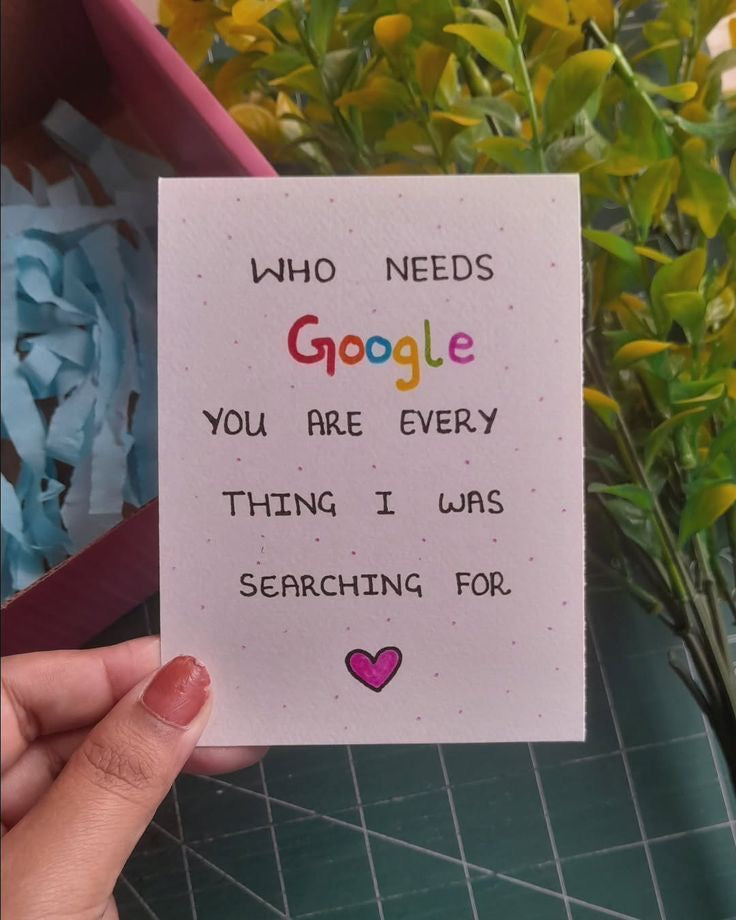 WHO NEEDS
Google
YOU ARE EVERY
THING I WAS
SEARCHING FOR